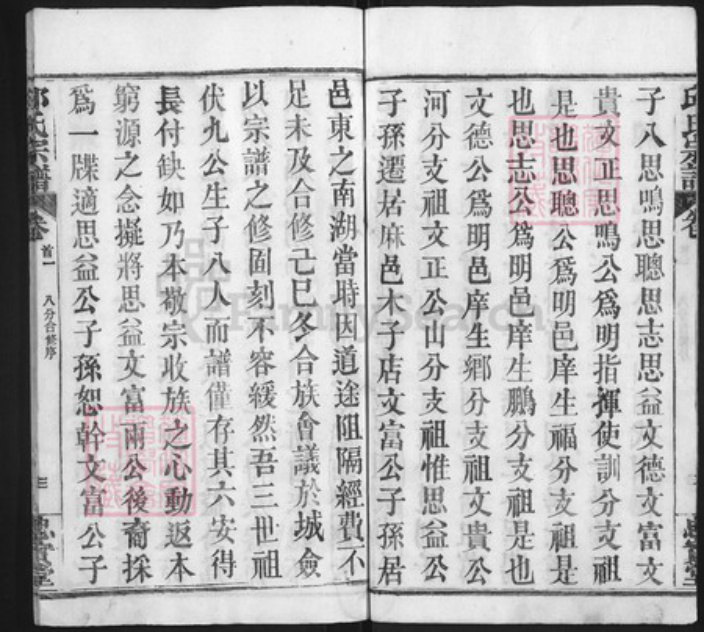 子八思鳴思聰思志思益文德文富文
貴文正思鳴公爲明指揮使訓分支祖
是也思聰公爲明邑庠生福分支祖是
也思志公爲明邑庠生鵬分支祖是也
文德公爲明邑庠生鄉分支祖文貴公
河分支祖文正公山分支祖惟思益公
子孫遷居麻邑木子店文富公子孫居
邑東之南湖當時因道途阻隔經費不
足未及合修己巳冬合族會議於城僉
以宗譜之修固刻不容緩然吾三世祖
伏九公生子八人而譜僅存其六安得
長付缺如乃本敬宗收族之心動返本
窮源之念擬將思益文富兩公後裔採
爲一牒適思益公子孫恕幹文富公子
邱氏宗譜
卷
首一
八分合修序
三
FamilySearch